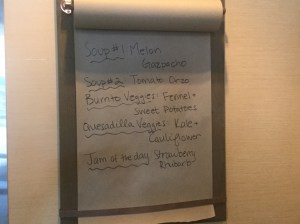 Soup #1 Melon
Gazpacho
Soup #2: Tomato Orzo
Burrito Veggies: Fennel +
Sweet Potatoes
Quesadilla Veggies: Kale +
Cauliflower
Jam of the day: Strawberry
Rhubarb